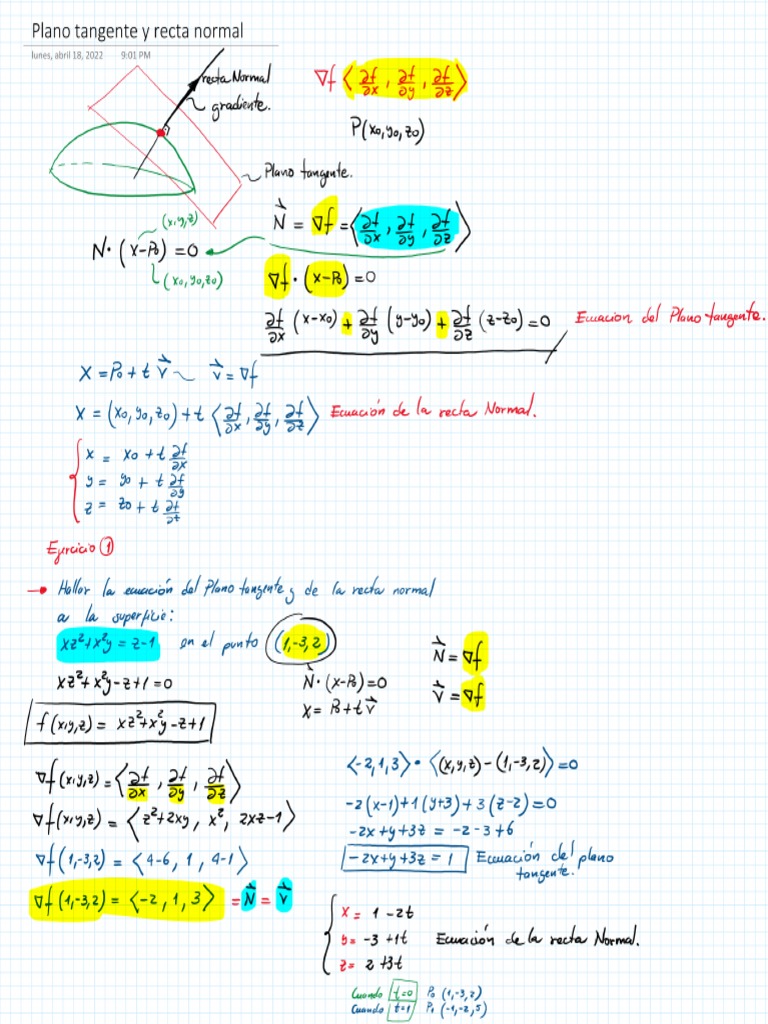 Plano tangente y recta normal
lunes, abril 18, 2022 9:01 PM
recta Normal
gradiente.
Plano tangente.
∇f ⟨∂f/∂x , ∂f/∂y , ∂f/∂z⟩
P(x₀,y₀,z₀)
N⃗ = ∇f = ⟨∂f/∂x , ∂f/∂y , ∂f/∂z⟩
(x,y,z)
N·(x-P₀)=0
(x₀,y₀,z₀)
∇f·(x-P₀)=0
∂f/∂x (x-x₀) + ∂f/∂y (y-y₀) + ∂f/∂z (z-z₀)=0 Ecuacion del Plano tangente.
X = P₀ + t v⃗ ~ v⃗ = ∇f
X = (x₀,y₀,z₀) + t ⟨∂f/∂x, ∂f/∂y, ∂f/∂z⟩ Ecuación de la recta Normal.
x = x₀ + t ∂f/∂x
y = y₀ + t ∂f/∂y
z = z₀ + t ∂f/∂t
Ejercicio 1
→ Hallar la ecuación del Plano tangente y de la recta normal
a la superficie:
xz²+x²y = z-1 en el punto (1,-3,2)
xz²+x²y-z+1=0
f(x,y,z) = xz²+x²y-z+1
N⃗·(x-P₀)=0
X = P₀+t v⃗
N⃗ = ∇f
v⃗ = ∇f
∇f(x,y,z)=⟨∂f/∂x , ∂f/∂y , ∂f/∂z⟩
∇f(x,y,z) = ⟨z²+2xy, x², 2xz-1⟩
∇f(1,-3,2) = ⟨4-6, 1, 4-1⟩
∇f(1,-3,2) = ⟨-2, 1, 3⟩ = N⃗ = v⃗
⟨-2,1,3⟩·⟨(x,y,z)-(1,-3,2)⟩=0
-2(x-1)+1(y+3)+3(z-2)=0
-2x+y+3z = -2-3+6
-2x+y+3z = 1 Ecuación del plano
tangente.
x = 1 -2t
y = -3 +1t Ecuación de la recta Normal.
z = 2 +3t
Cuando t=0 P₀ (1,-3,2)
Cuando t=1 P₁ (-1,-2,5)